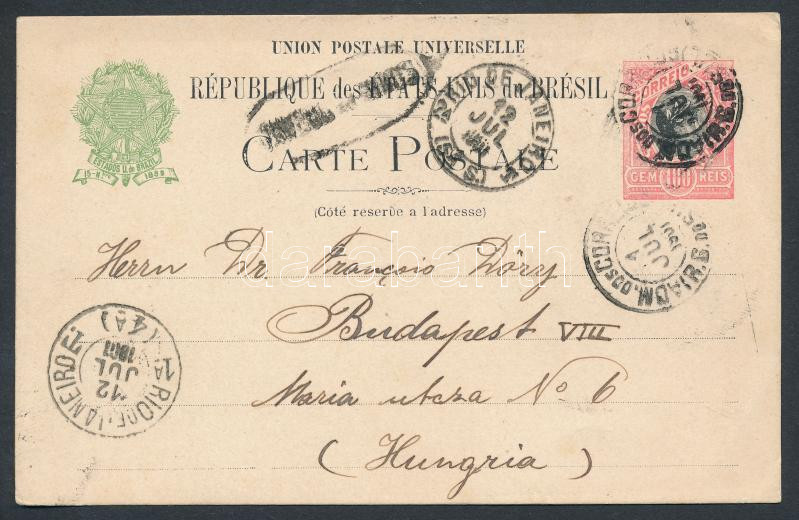 UNION POSTALE UNIVERSELLE
RÉPUBLIQUE des ÉTATS-UNIS du BRÉSIL
CARTE POSTALE
(Côté reservé a l'adresse)
ESTADOS U. do BRAZIL
15-N
1889
CORREIO
CEM 100 REIS
RIO DE JANEIRO
12
JUL
CORR
ADM. DOS
JUL
1901
Herrn Dr François Dóry
Budapest VIII
Maria utcza No 6
(Hungria)
RIO DE JANEIRO
1ª
12
JUL
1901
(4A)
darabanth